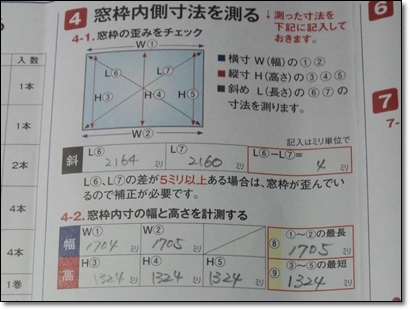 6
4 窓枠内側寸法を測る
↓測った寸法を
下記に記入して
おきます。
4-1.窓枠の歪みをチェック
W①
L⑥
L⑦
H③
H④
H⑤
W②
■横寸 W(幅)の①②
■縦寸 H(高さ)の③④⑤
■斜め L(長さ)の⑥⑦の
寸法を測ります。
7
7-
記入はミリ単位で
斜 L⑥ 2164 ミリ L⑦ 2160 ミリ L⑥-L⑦= 4 ミリ
L⑥、L⑦の差が5ミリ以上ある場合は、窓枠が歪んでいる
ので補正が必要です。
4-2.窓枠内寸の幅と高さを計測する
幅 W① 1704 ミリ W② 1705 ミリ ⑧ ①〜②の最長 1705 ミリ
高 H③ 1324 ミリ H④ 1324 ミリ H⑤ 1324 ミリ ⑨ ③〜⑤の最短 1324 ミリ
入数
1本
1本
2本
4本
4本
1巻